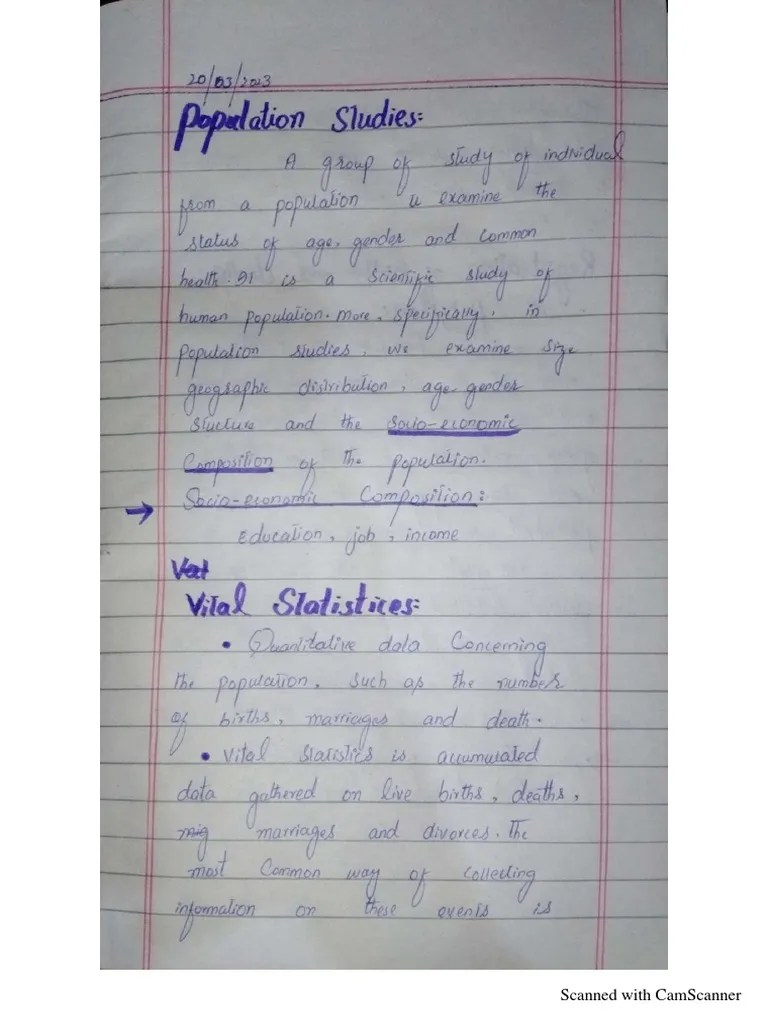 20/03/2023
Population Studies:
A group of study of individual
from a population is examine the
status of age, gender and common
health. It is a scientific study of
human population. more, specifically, in
population studies, we examine size
geographic distribution, age gender
stucture and the socio-economic
composition of the population.
→ Socio-economic Composition:
Education, job, income
Vital Statistices:
• Quantitative data Concerning
the population, such as the number
of births, marriages and death.
• Vital statistics is accumulated
data gathered on live births, deaths,
mig marriages and divorces. The
most Common way of collecting
information on these events is
Scanned with CamScanner